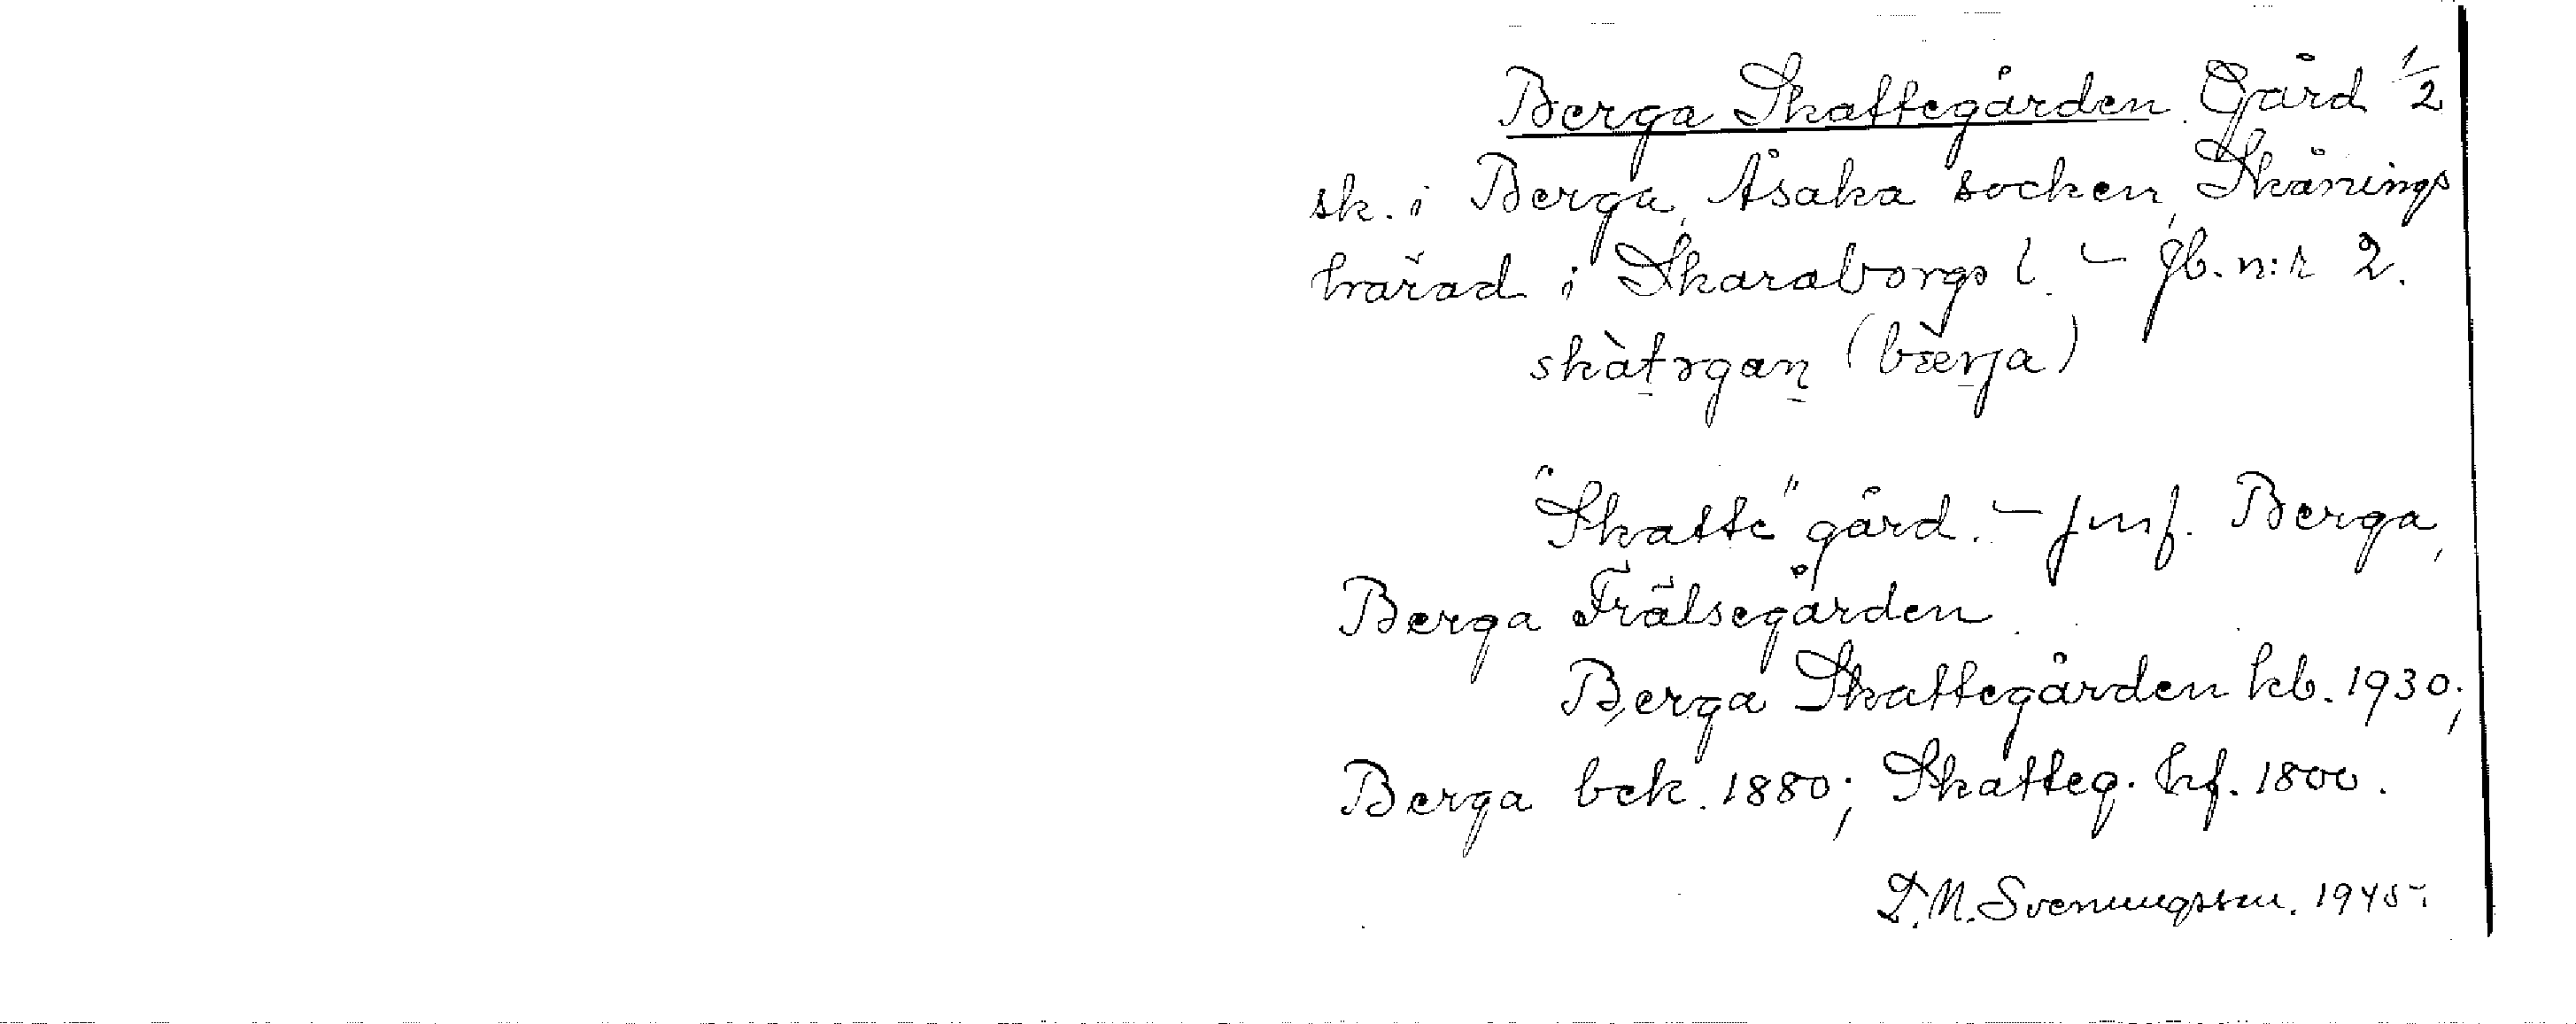 Berga Skattegården. Gård 1/2
sk. i Berga, Åsaka socken, Skånings
härad i Skaraborgs l. – Jb. n:r 2.
skàt̠ɔgan̠ (bær̠ja)
"Skatte" gård. – Jmf. Berga,
Berga Frälsegården.
Berga Skattegården kb. 1930;
Berga bek. 1880; Skatteg. hf. 1800.
D. N. Svenungsson. 1945.